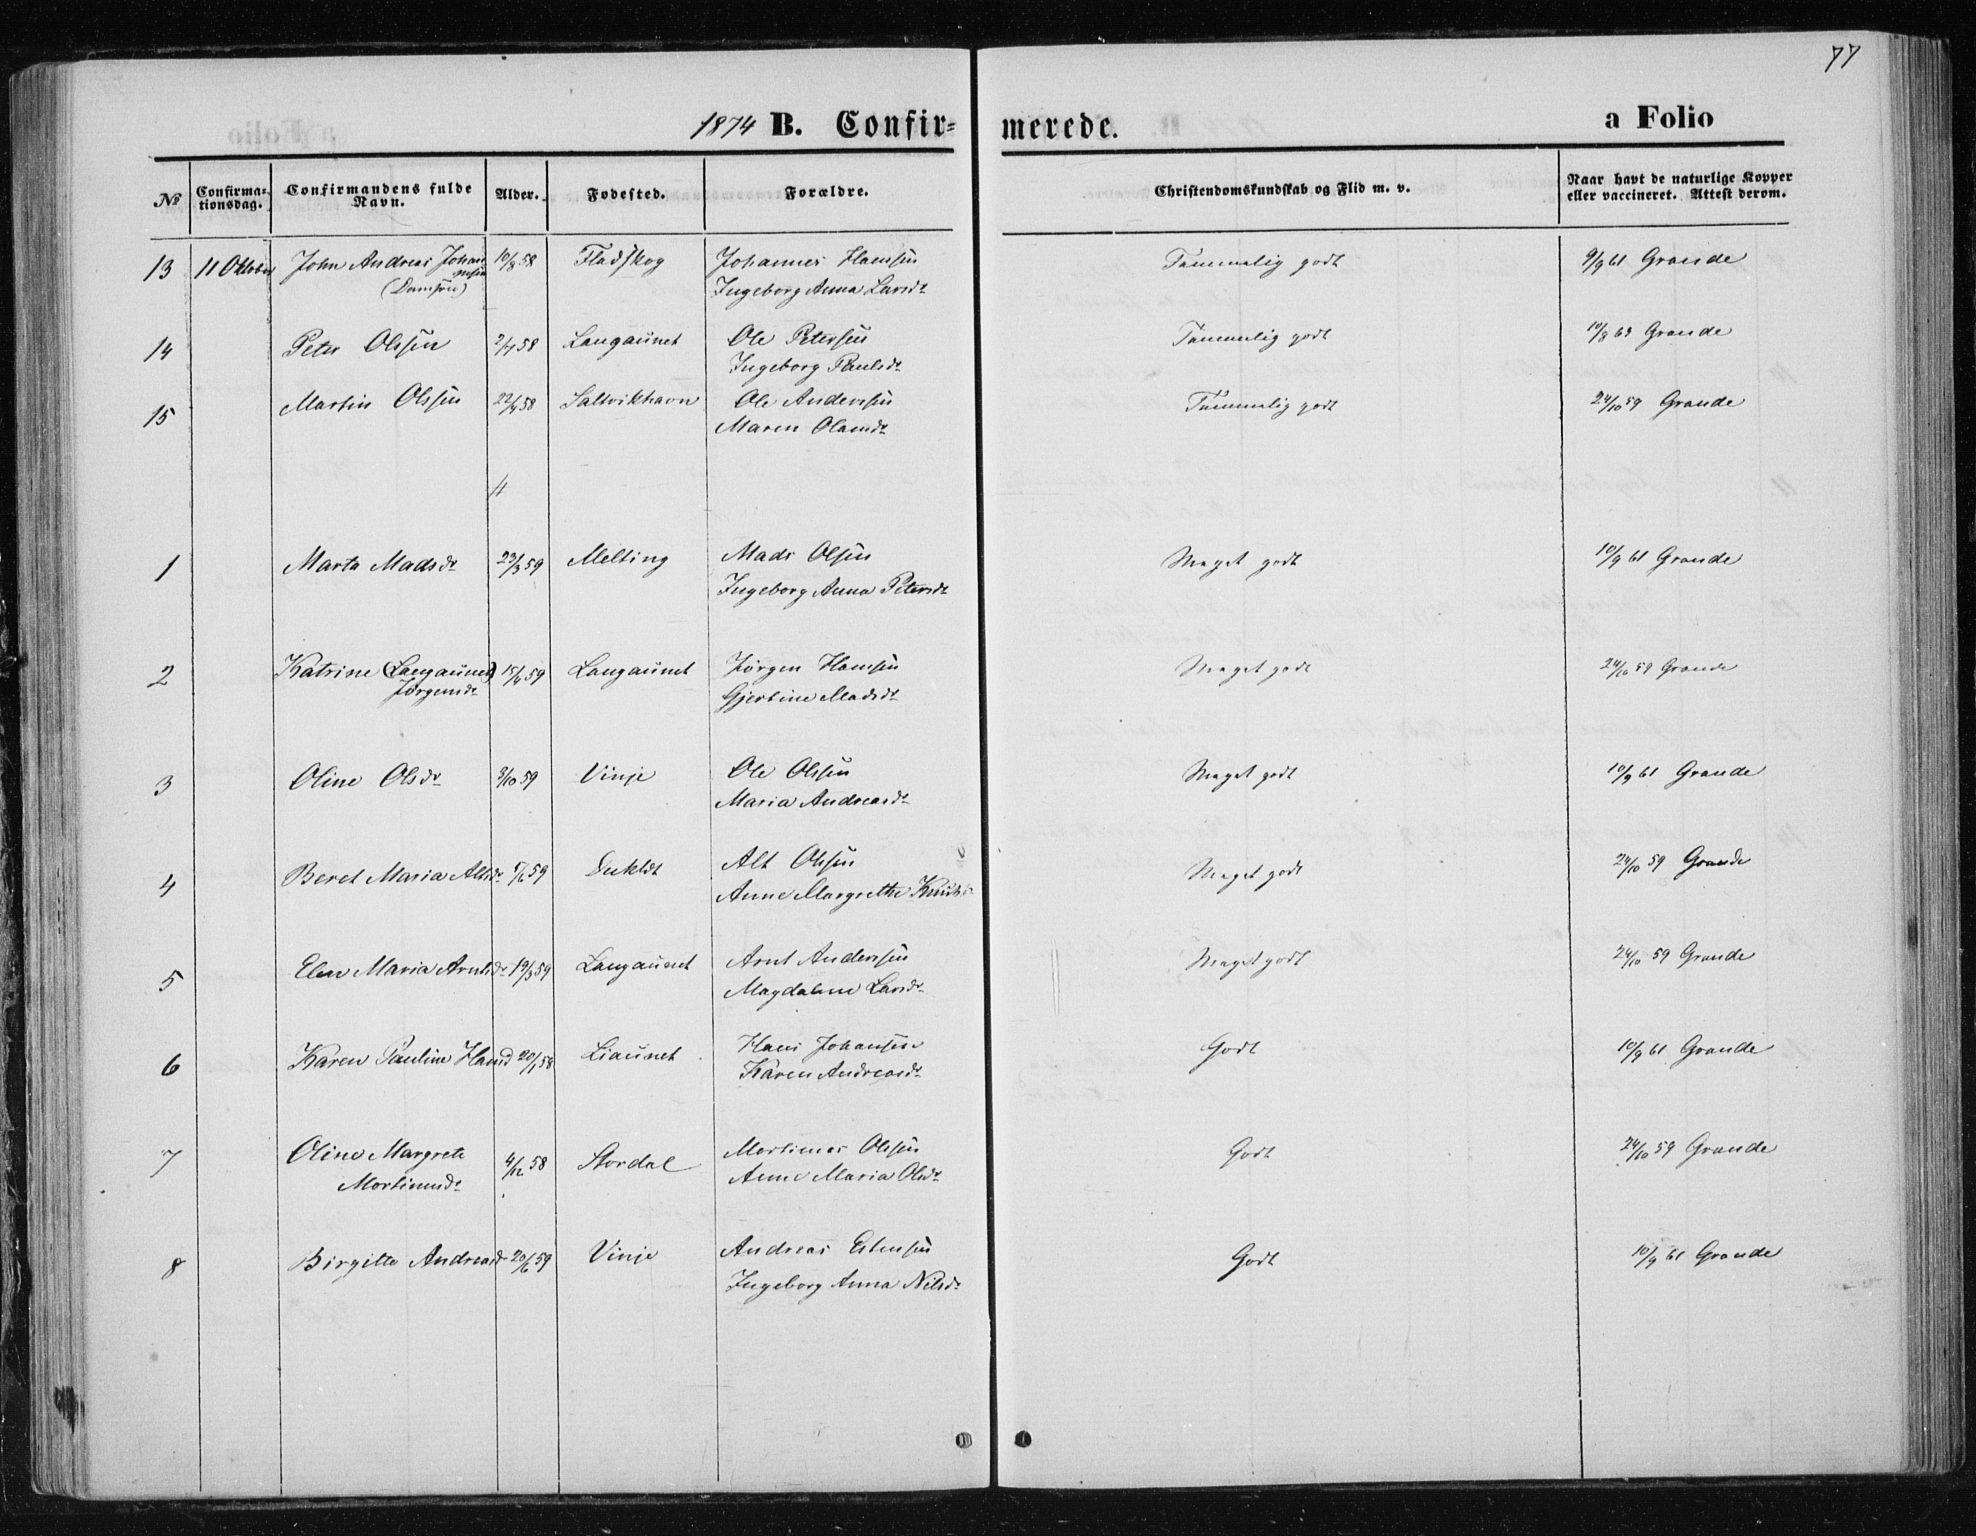 77
1874 B. Confir= merede. a Folio
№ Confirma=tionsdag. Confirmandens fulde Navn. Alder. Fødested. Forældre. Christendomskundskab og Flid m. v. Naar havt de naturlige Kopper eller vaccineret. Attest derom.
13 11 Oktober John Andreas Johan 10/8 58 Fladskog Johannes Hansen Temmelig godt 9/9 61 Grande
nesen Ingeborg Anna Larsdr
Peter Olssen 2/7 58 Langaunet Ole Petersen Temmelig godt 10/8 63 Grande
14 Ingeborg Paulsdr
15 Martin Olssen 22/4 58 Saltvikhavn Ole Andersen Temmelig godt 24/10 59 Grande
Maren Olausdr
1 Marta Madsdr 23/3 59 Melting Mads Olsen Meget godt 10/9 61 Grande
Ingeborg Anna Petersdr
2 Katrine (Langaunet) 15/4 59 Langaunet Jørgen Hansen Meget godt 24/10 59 Grande
Jørgensdr Gjertine Madsdr
3 Oline Olsdr 3/10 59 Vinje Ole Olssen Meget godt 10/9 61 Grande
Maria Andreasdr
4 Beret Maria Altsdr 7/6 59 Alt Olssen Meget godt 24/10 59 Grande
Anne Margrethe Knudsdr
5 Elen Maria Arntsdr 19/3 59 Langaunet Arnt Andersen Meget godt 24/10 59 Grande
Magdalene Larsdr
6 Karen Pauline Hansd 20/1 58 Liaunet Hans Johansen Godt 10/9 61 Grande
Karen Andreasdr
7 Oline Margrete 4/12 58 Stordal Mortinus Olssen Godt 24/10 59 Grande
Mortinusdr Anne Maria Olsdr
8 Birgitte Andreasdr 20/6 59 Vinje Andreas Estensen Godt 10/9 61 Grande
Ingeborg Anna Nilsdr